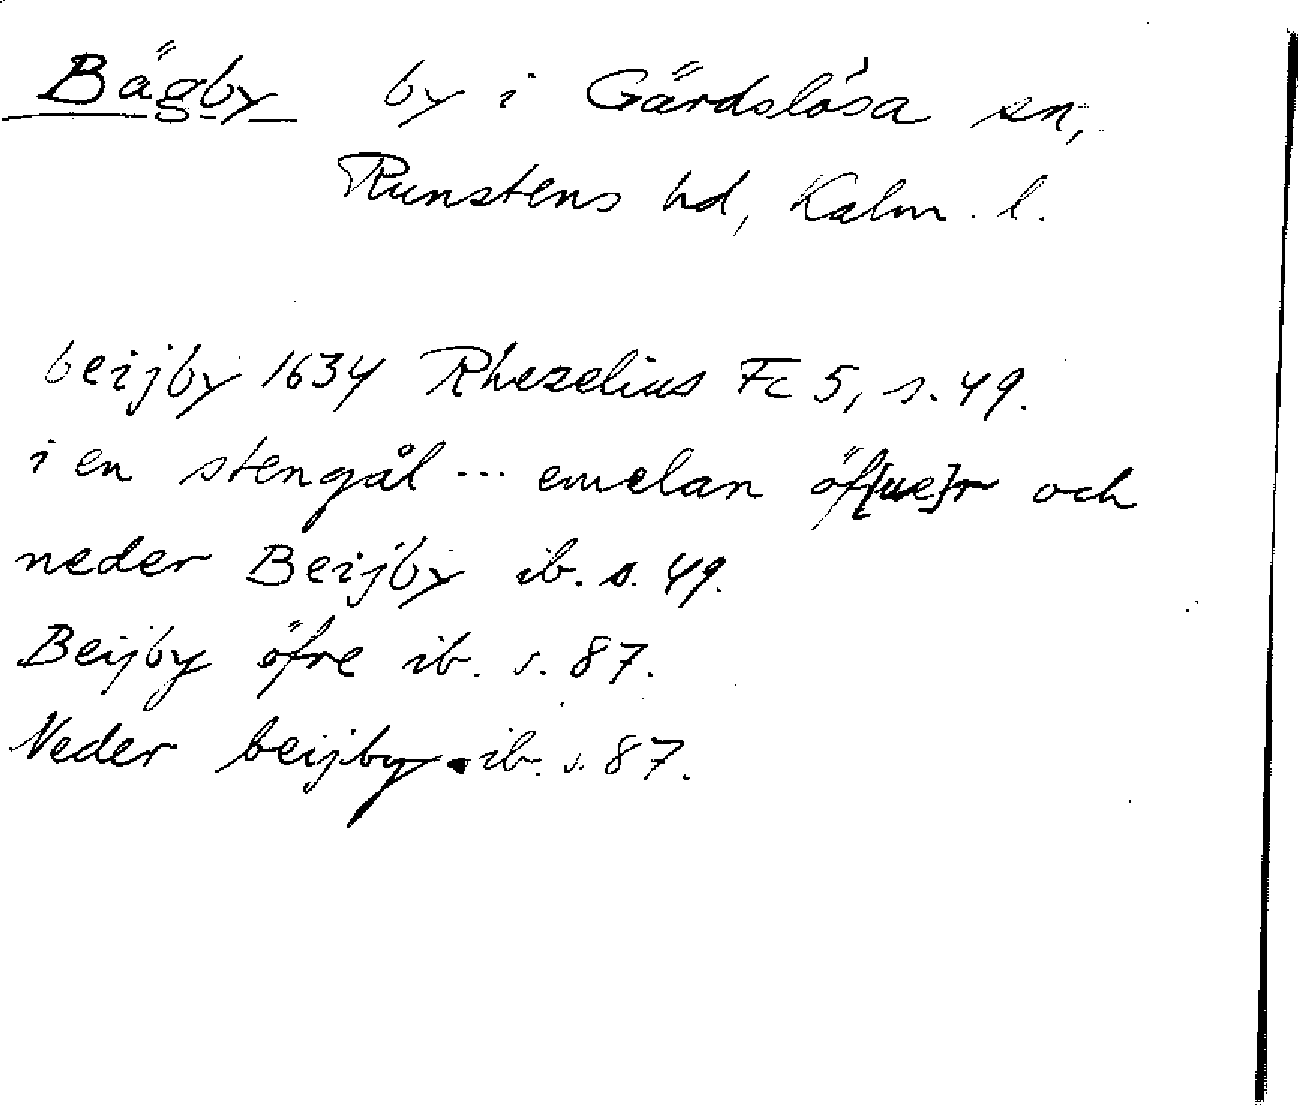 Bägby by i Gärdslösa sn,
Runstens hd, Kalm. l.
beijby 1634 Rhezelius Fc 5, s. 49.
i en stengål ... emelan öf[ue]r och
neder Beijby ib. s. 49.
Beijby öfre ib. s. 87.
Neder beijby. ib. s. 87.